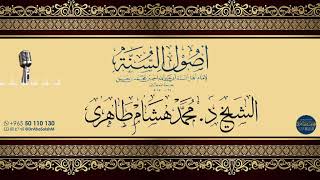 أصول السنة
لإمام أهل السنة أبي عبد الله أحمد بن محمد بن حنبل
الشيخ د. محمد هشام طاهري
+965 50 110 130